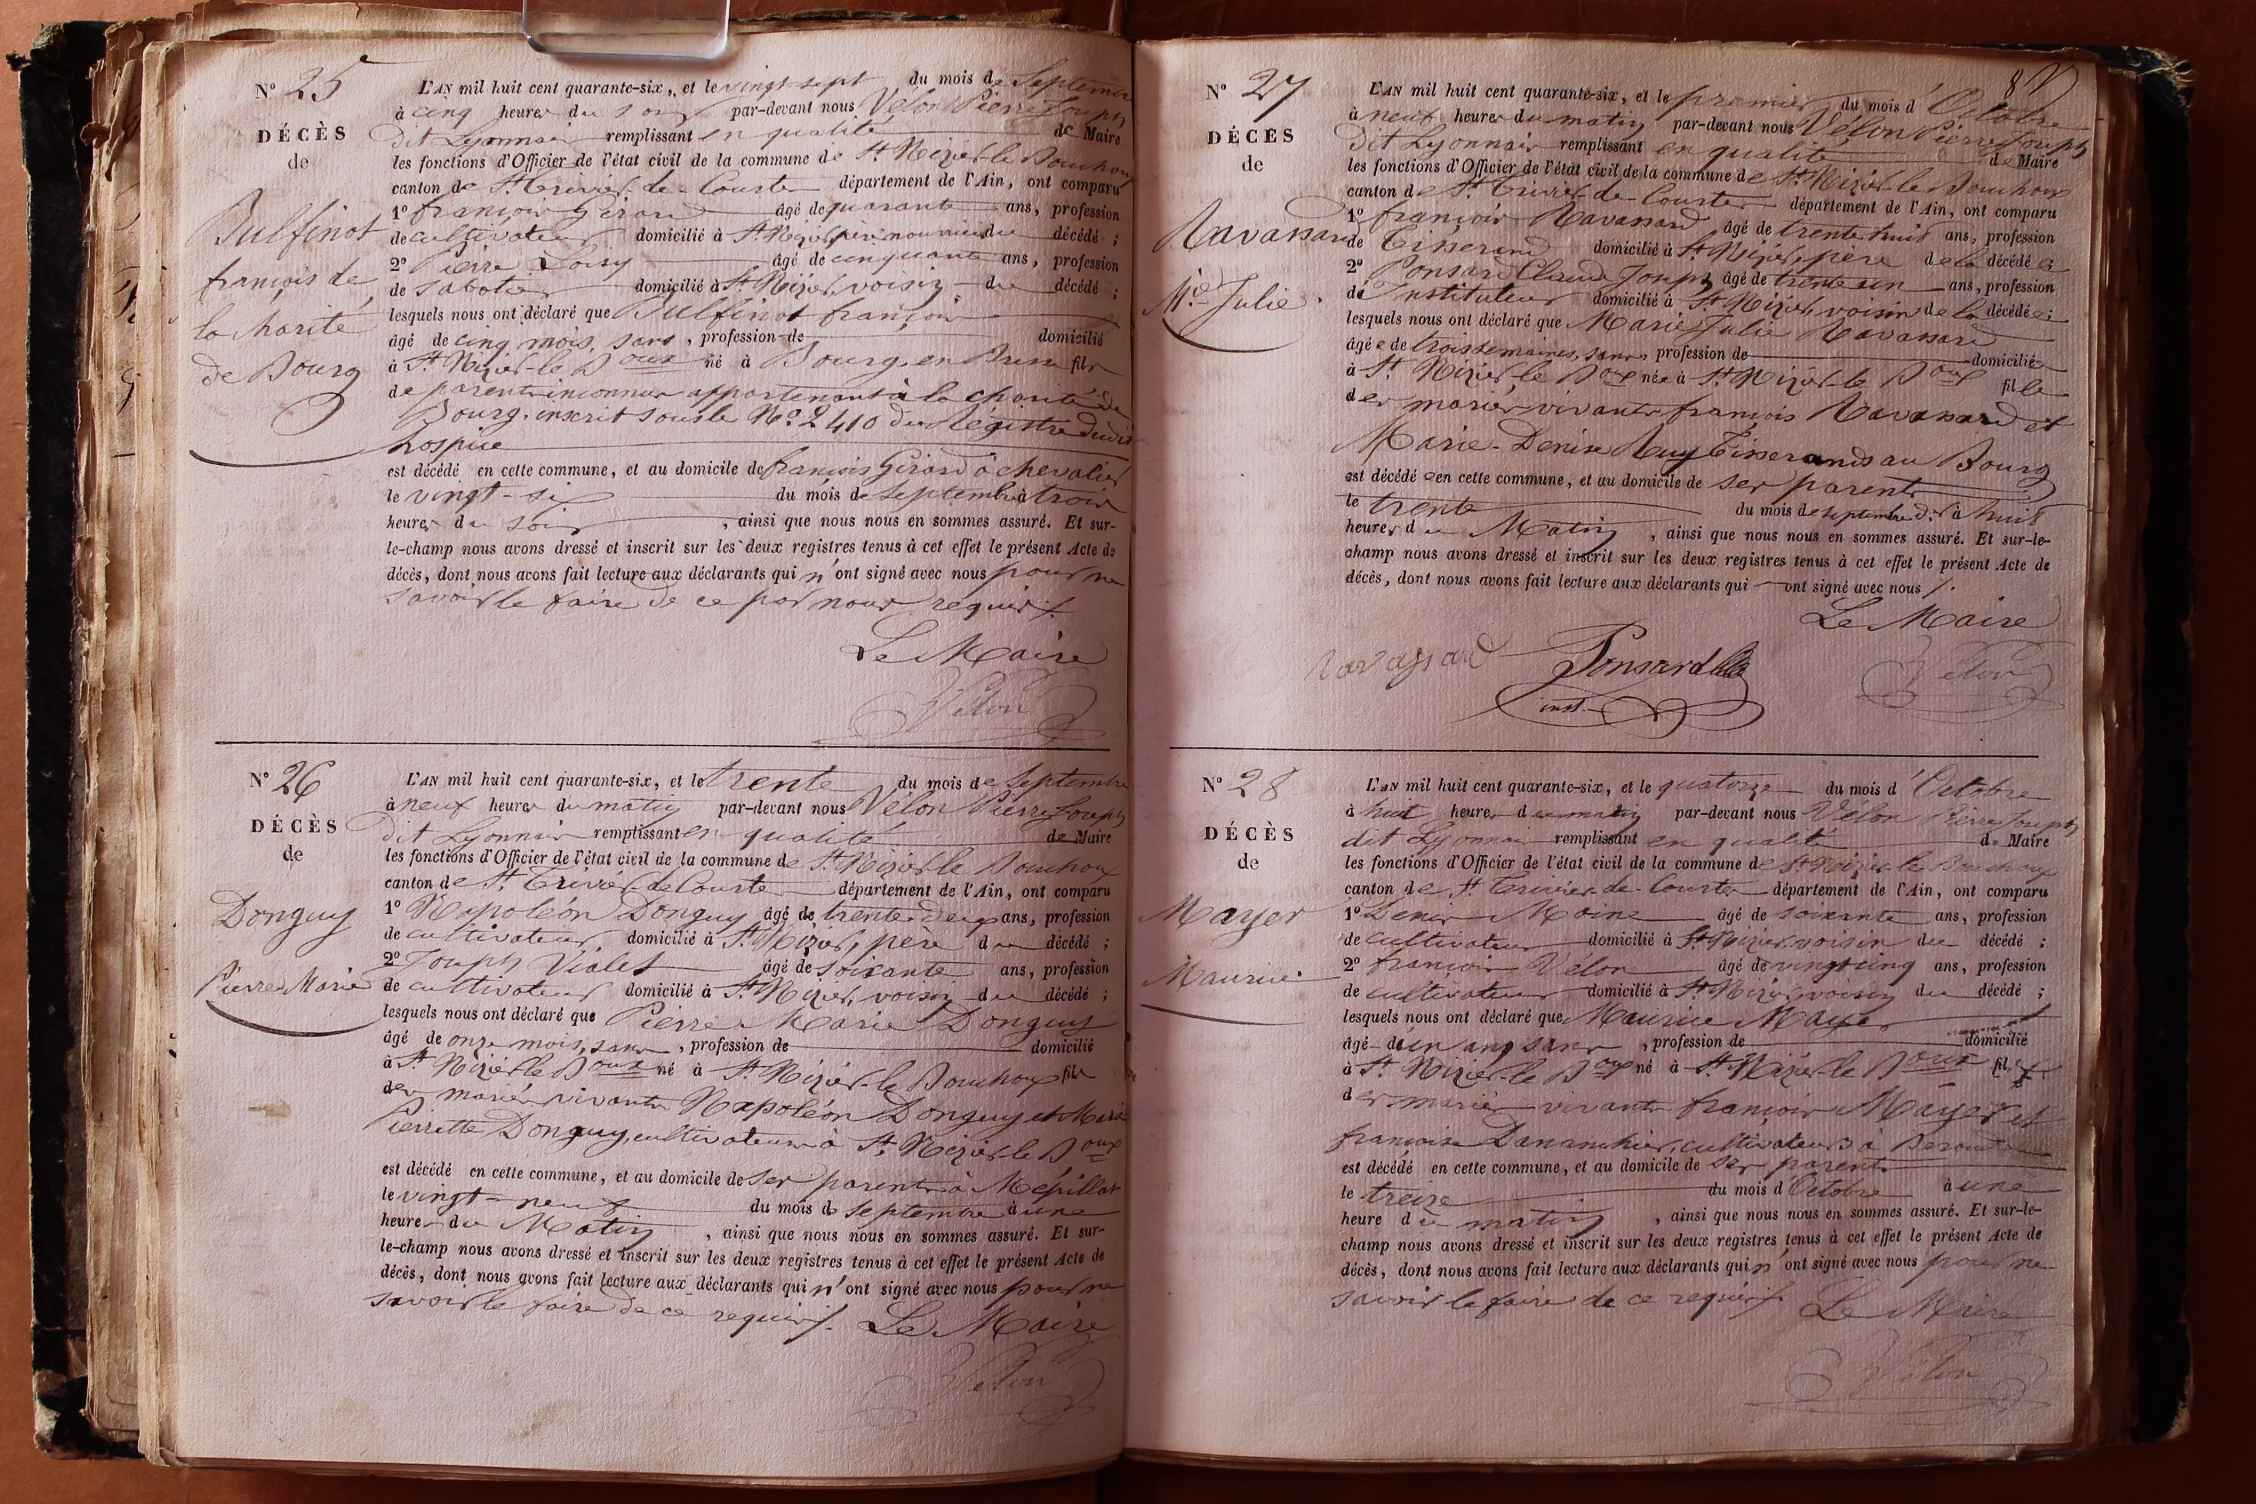 N° 25
DÉCÈS
de
Bulfinot
françois de
la charité
de Bourg
L'AN mil huit cent quarante-six, et le vingt-sept du mois de Septembre
à cinq heures du soir par-devant nous Vélon Pierre Joseph
dit Lyonnais remplissant en qualité de Maire
les fonctions d'Officier de l'état civil de la commune de St Nizier-le Bouchoux
canton de St Trivier-de-Courtes département de l'Ain, ont comparu
1° françois Girard âgé de quarante ans, profession
de cultivateur domicilié à St Nizier, père nourricier du décédé ;
2° Pierre Doisy âgé de cinquante ans, profession
de sabotier domicilié à St Nizier, voisin du décédé ;
lesquels nous ont déclaré que Bulfinot françois
âgé de cinq mois, sans, profession de domicilié
à St Nizier-le Boux né à Bourg-en-Bresse fils
de parents inconnus appartenant à la charité de
Bourg, inscrit sous le N° 2410 du régistre dudit
hospice
est décédé en cette commune, et au domicile de françois Girard à chevalier
le vingt-six du mois de Septembre à trois
heures du soir, ainsi que nous nous en sommes assuré. Et sur-
le-champ nous avons dressé et inscrit sur les deux registres tenus à cet effet le présent Acte de
décès, dont nous avons fait lecture aux déclarants qui n'ont signé avec nous pour ne
savoir le faire de ce par nous requis.
Le Maire
Vélon
N° 26
DÉCÈS
de
Donguy
Pierre Marie
L'AN mil huit cent quarante-six, et le trente du mois de Septembre
à neuf heures du matin par-devant nous Vélon Pierre Joseph
dit Lyonnais remplissant en qualité de Maire
les fonctions d'Officier de l'état civil de la commune de St Nizier-le Bouchoux
canton de St Trivier-de Courtes département de l'Ain, ont comparu
1° Napoléon Donguy âgé de trente-deux ans, profession
de cultivateur, domicilié à St Nizier, père du décédé ;
2° Joseph Violet âgé de soixante ans, profession
de cultivateur domicilié à St Nizier, voisin du décédé ;
lesquels nous ont déclaré que Pierre Marie Donguy
âgé de onze mois, sans, profession de domicilié
à St Nizier le Boux né à St Nizier-le Bouchoux fils
des mariés vivants Napoléon Donguy et Marie
Pierrette Donguy, cultivateurs à St Nizier le Boux
est décédé en cette commune, et au domicile de ses parents à Mépillat
le vingt-neuf du mois de Septembre à une
heure du Matin, ainsi que nous nous en sommes assuré. Et sur-
le-champ nous avons dressé et inscrit sur les deux registres tenus à cet effet le présent Acte de
décès, dont nous avons fait lecture aux déclarants qui n'ont signé avec nous pour ne
savoir le faire de ce requis.
Le Maire
Vélon
N° 27
DÉCÈS
de
Ravassard
Mie Julie.
L'AN mil huit cent quarante-six, et le premier du mois d'Octobre
à neuf heures du matin par-devant nous Vélon Pierre Joseph
dit Lyonnais remplissant en qualité de Maire
les fonctions d'Officier de l'état civil de la commune de St Nizier-le Bouchoux
canton de St Trivier-de-Courtes département de l'Ain, ont comparu
1° françois Ravassard âgé de trente huit ans, profession
de Tisserand domicilié à St Nizier, père de la décédée
2° Ponsard Claude Joseph âgé de trente un ans, profession
de Instituteur domicilié à St Nizier, voisin de la décédée ;
lesquels nous ont déclaré que Marie Julie Ravassard
âgée de trois semaines, sans profession de domiciliée
à St Nizier-le Boux née à St Nizier-le Boux fille
des mariés vivants françois Ravassard et
Marie-Denise Ruy Tisserands au Bourg
est décédée en cette commune, et au domicile de ses parents
le trente du mois de septembre dr à huit
heures du Matin, ainsi que nous nous en sommes assuré. Et sur-le-
champ nous avons dressé et inscrit sur les deux registres tenus à cet effet le présent Acte de
décès, dont nous avons fait lecture aux déclarants qui ont signé avec nous
Le Maire
Ravassard Ponsard Vélon
inst.
N° 28
DÉCÈS
de
Mayer
Maurice.
L'AN mil huit cent quarante-six, et le quatorze du mois d'Octobre
à huit heures du matin par-devant nous Vélon Pierre Joseph
dit Lyonnais remplissant en qualité de Maire
les fonctions d'Officier de l'état civil de la commune de St Nizier-le Bouchoux
canton de St Trivier-de-Courtes département de l'Ain, ont comparu
1° Denis Moine âgé de soixante ans, profession
de cultivateur domicilié à St Nizier, voisin du décédé ;
2° françois Vélon âgé de vingt cinq ans, profession
de cultivateur domicilié à St Nizier, voisin du décédé ;
lesquels nous ont déclaré que Maurice Mayer
âgé d'un an, sans, profession de domicilié
à St Nizier-le Boux né à St Nizier-le Boux fils
des mariés vivants françois Mayer et
françoise Dananchier, cultivateurs à
est décédé en cette commune, et au domicile de ses parents
le treize du mois d'Octobre à une
heure du matin, ainsi que nous nous en sommes assuré. Et sur-le-
champ nous avons dressé et inscrit sur les deux registres tenus à cet effet le présent Acte de
décès, dont nous avons fait lecture aux déclarants qui n'ont signé avec nous pour ne
savoir le faire de ce requis.
Le Maire
Vélon